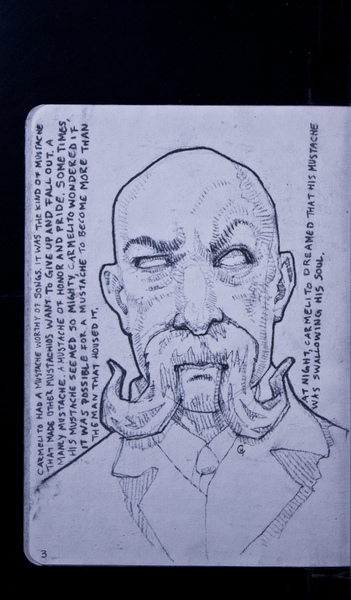 CARMELITO HAD A MUSTACHE WORTHY OF SONGS. IT WAS THE KIND OF MUSTACHE
THAT MADE OTHER MUSTACHIOS WANT TO GIVE UP AND FALL OUT. A
MANLY MUSTACHE. A MUSTACHE OF HONOR AND PRIDE. SOMETIMES,
HIS MUSTACHE SEEMED SO MIGHTY, CARMELITO WONDERED IF
IT WAS POSSIBLE FOR A MUSTACHE TO BECOME MORE THAN
THE MAN THAT HOUSED IT.
AT NIGHT, CARMELITO DREAMED THAT HIS MUSTACHE
WAS SWALLOWING HIS SOUL.
3